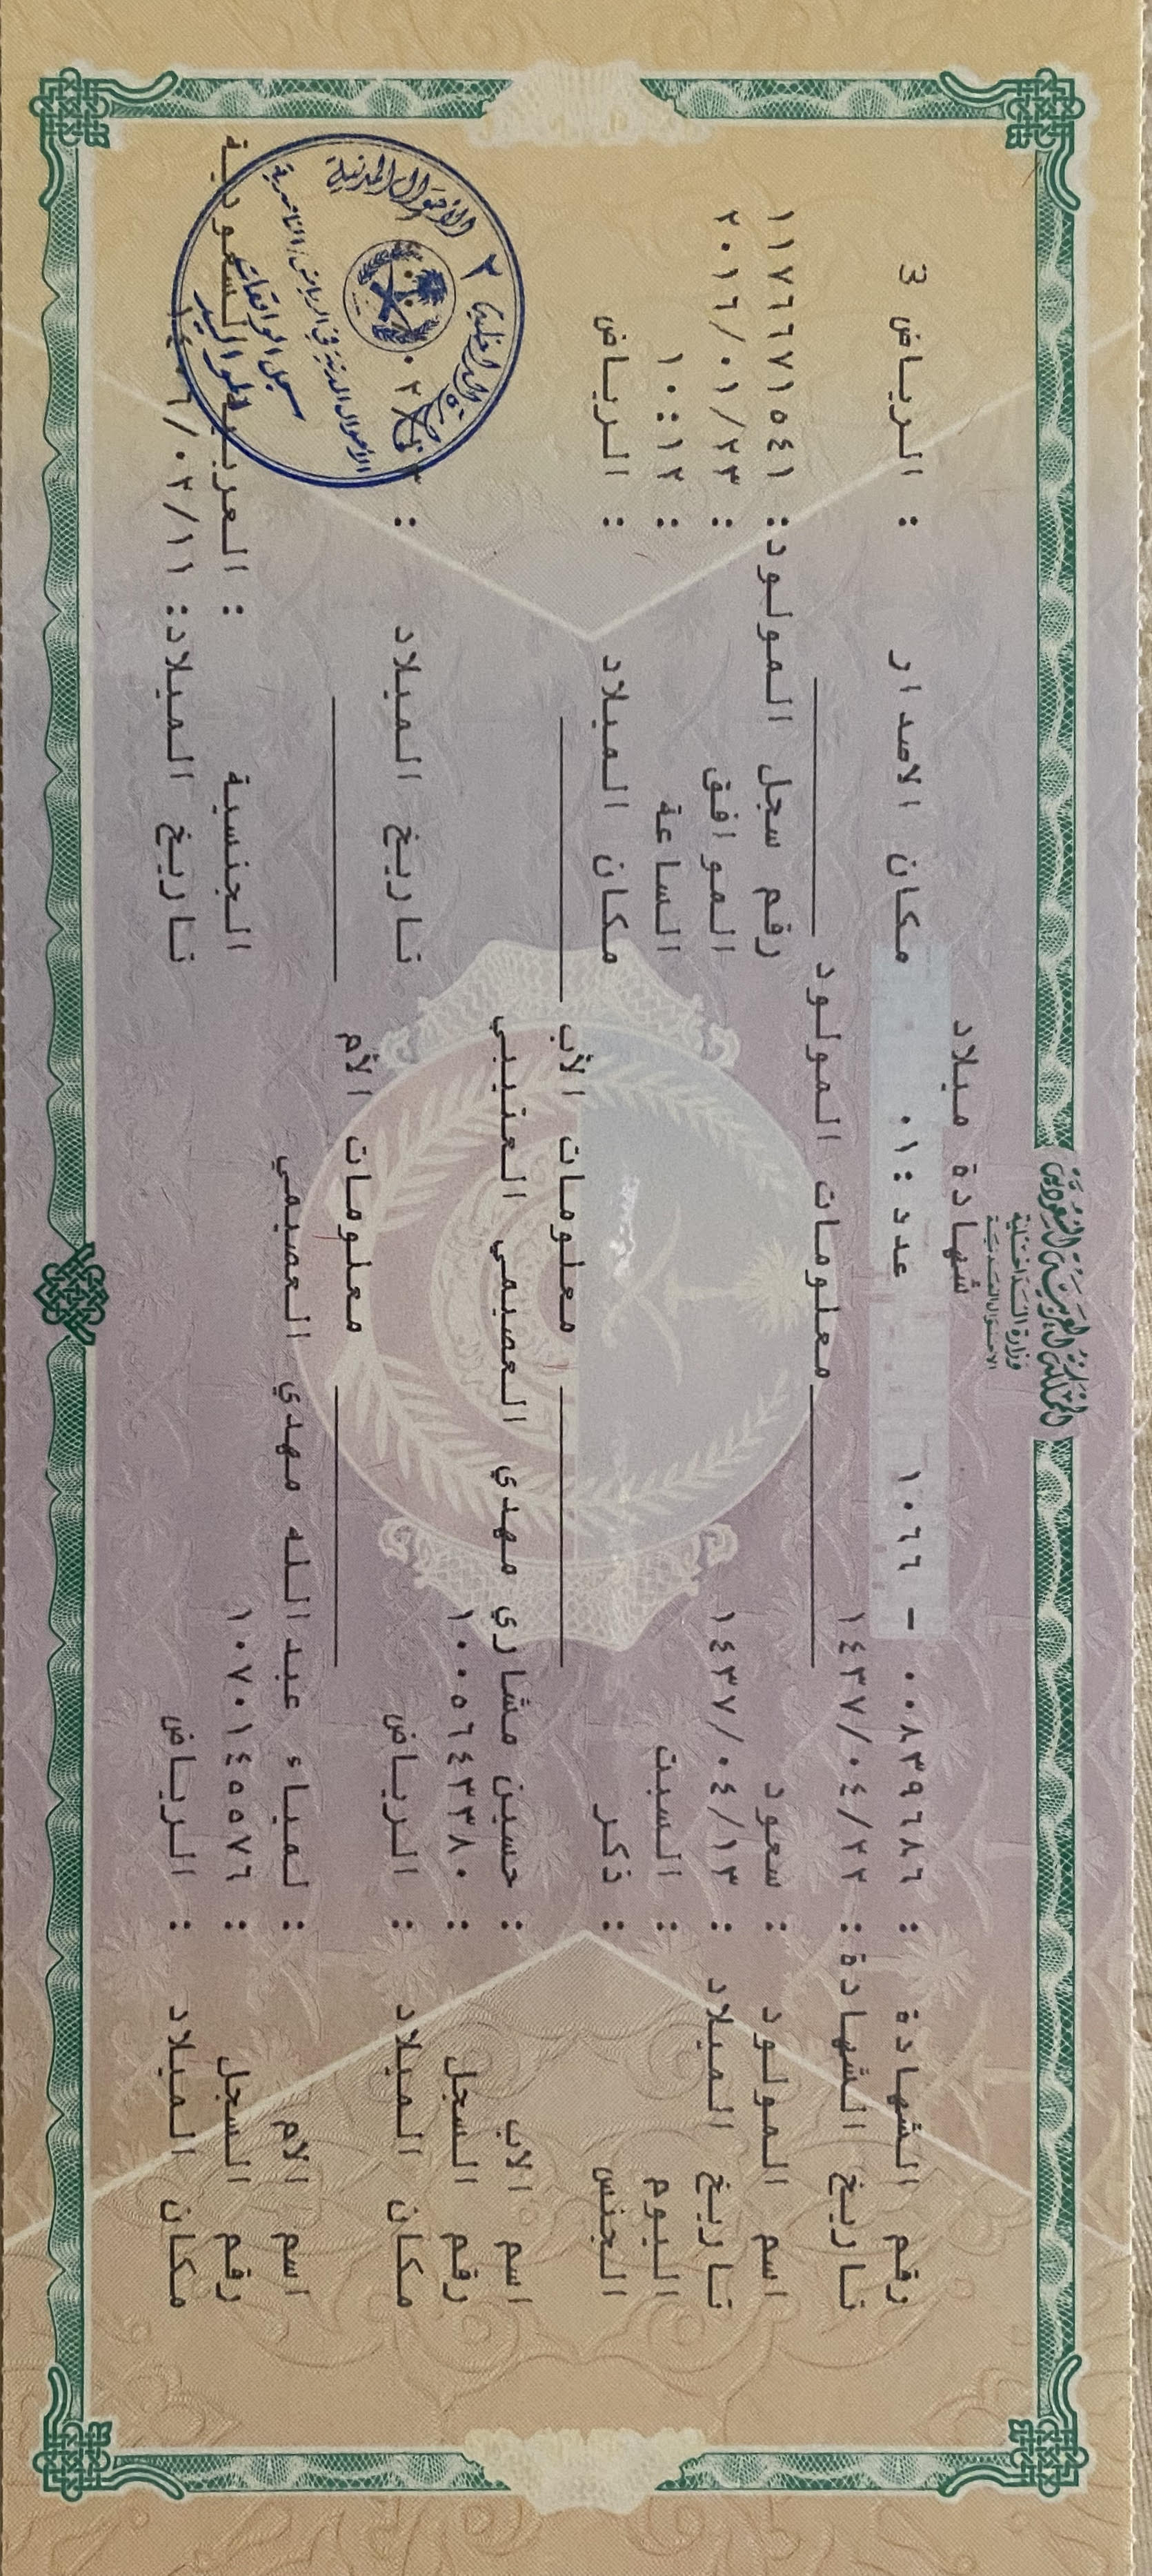 المملكة العربية السعودية
وزارة الداخلية
الأحوال المدنية
شهادة ميلاد
رقم الشهادة : ٠٠٨٣٩٦٨٦ - ١٠٦٦ عدد :٠١ مكان الاصدار : الرياض 3
تاريخ الشهادة : ١٤٣٧/٠٤/٢٢
معلومات المولود
اسم المولود : سعود رقم سجل المولود: ١١٧٦٦٧١٥٤١
تاريخ الميلاد : ١٤٣٧/٠٤/١٣ الموافق : ٢٠١٦/٠١/٢٣
اليوم : السبت الساعة : ١٠:١٢
الجنس : ذكر مكان الميلاد : الرياض
معلومات الأب
اسم الاب : حسين مشاري مهدي العصيمي العتيبي
رقم السجل : ١٠٠٥٦٤٣٣٨٠
مكان الميلاد : الرياض تاريخ الميلاد :
معلومات الأم
اسم الام : لمياء عبدالله مهدي العصيمي
رقم السجل : ١٠٧٠١٤٥٥٧٦ الجنسية : العربية السعودية
مكان الميلاد : الرياض تاريخ الميلاد: ٠٢/١١/
وزارة الداخلية
٢
الأحوال المدنية
الأحوال المدنية في الرياض/الناصرية
سجل الواقعات
المواليد